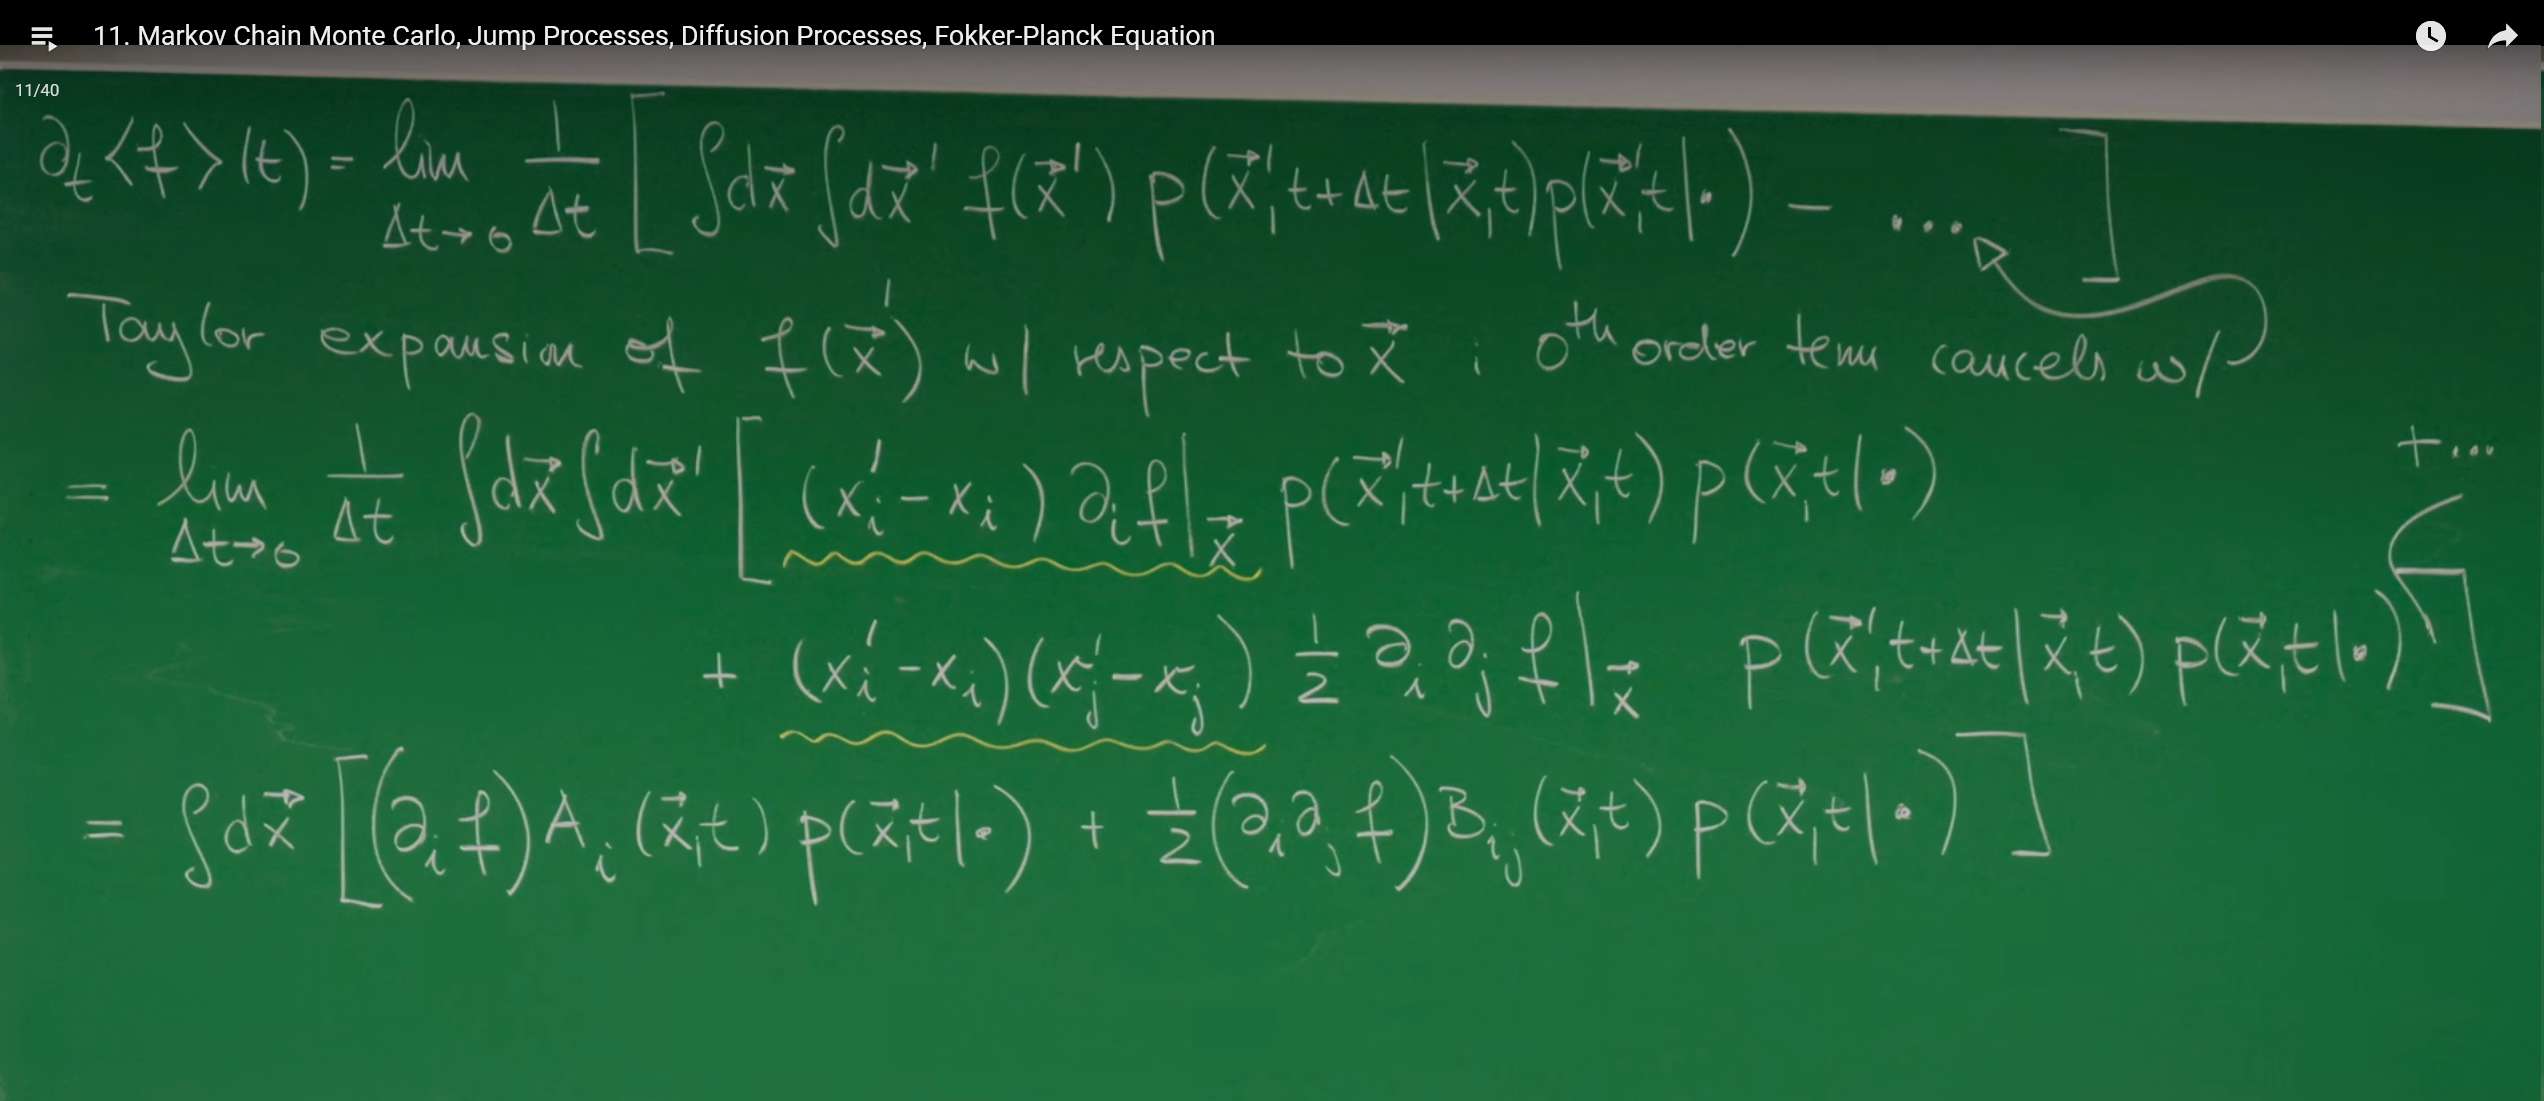 11. Markov Chain Monte Carlo, Jump Processes, Diffusion Processes, Fokker-Planck Equation
11/40
∂ₜ⟨f⟩(t) = lim_{Δt→0} 1/Δt [ ∫dx⃗ ∫dx⃗' f(x⃗') p(x⃗',t+Δt|x⃗,t) p(x⃗',t|•) − ... ]
Taylor expansion of f(x⃗') w/ respect to x⃗ ; 0th order term cancels w/
= lim_{Δt→0} 1/Δt ∫dx⃗ ∫dx⃗' [ (xᵢ' − xᵢ) ∂ᵢf|_x⃗ p(x⃗',t+Δt|x⃗,t) p(x⃗,t|•)
+ (xᵢ' − xᵢ)(xⱼ' − xⱼ) 1/2 ∂ᵢ∂ⱼ f|_x⃗ p(x⃗',t+Δt|x⃗,t) p(x⃗,t|•) +... ]
= ∫dx⃗ [ (∂ᵢf) Aᵢ(x⃗,t) p(x⃗,t|•) + 1/2 (∂ᵢ∂ⱼf) Bᵢⱼ(x⃗,t) p(x⃗,t|•) ]